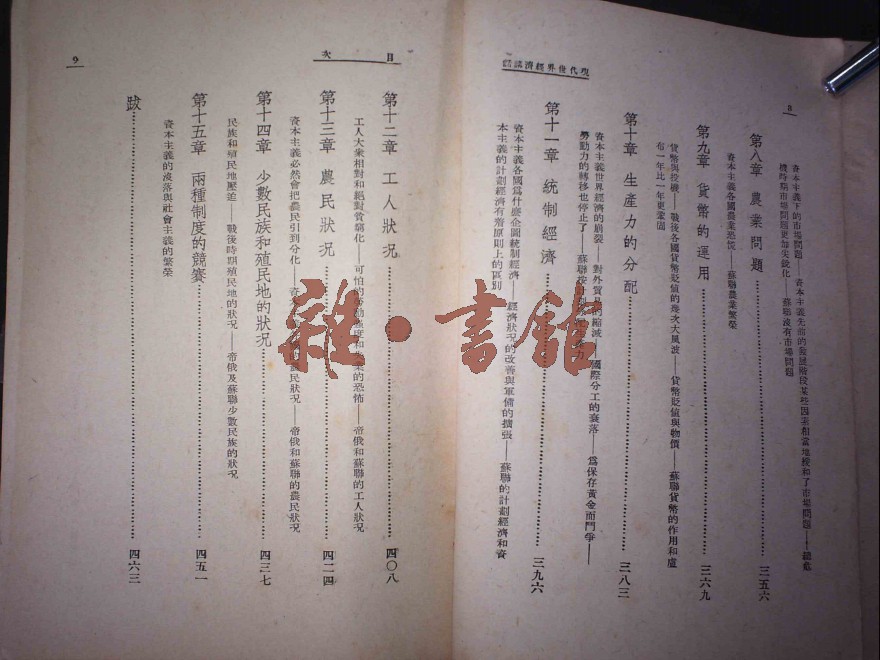 現代世界經濟講話
8
資本主義下的市場問題——資本主義先前的發展階段某些因素相當地緩和了市場問題——總危
機時期市場問題更加尖銳化——蘇聯沒有市場問題
第八章 農業問題 三五六
資本主義各國農業恐慌——蘇聯農業繁榮
第九章 貨幣的運用 三六九
貨幣與投機——戰後各國貨幣貶值的幾次大風波——貨幣貶值與物價——蘇聯貨幣的作用和盧
布一年比一年更鞏固
第十章 生產力的分配 三八三
資本主義世界經濟的崩裂——對外貿易的縮減——國際分工的衰落——爲保存黃金而鬥爭——
勞動力的轉移也停止了——蘇聯
第十一章 統制經濟 三九六
資本主義各國爲什麽企圖統制經濟——經濟狀況的改善與軍備的擴張——蘇聯的計劃經濟和資
本主義的計劃經濟有着原則上的區別
目次
9
第十二章 工人狀況 四〇八
工人大衆相對和絕對貧窮化——可怕的勞動強度和失業的恐怖——帝俄和蘇聯的工人狀況
第十三章 農民狀況 四二四
資本主義必然會把農民引到分化——農民狀況——帝俄和蘇聯的農民狀況
第十四章 少數民族和殖民地的狀況 四三七
民族和殖民地壓迫——戰後時期殖民地的狀況——帝俄及蘇聯少數民族的狀況
第十五章 兩種制度的競賽 四五一
資本主義的沒落與社會主義的繁榮
跋 四六三
雜·書館